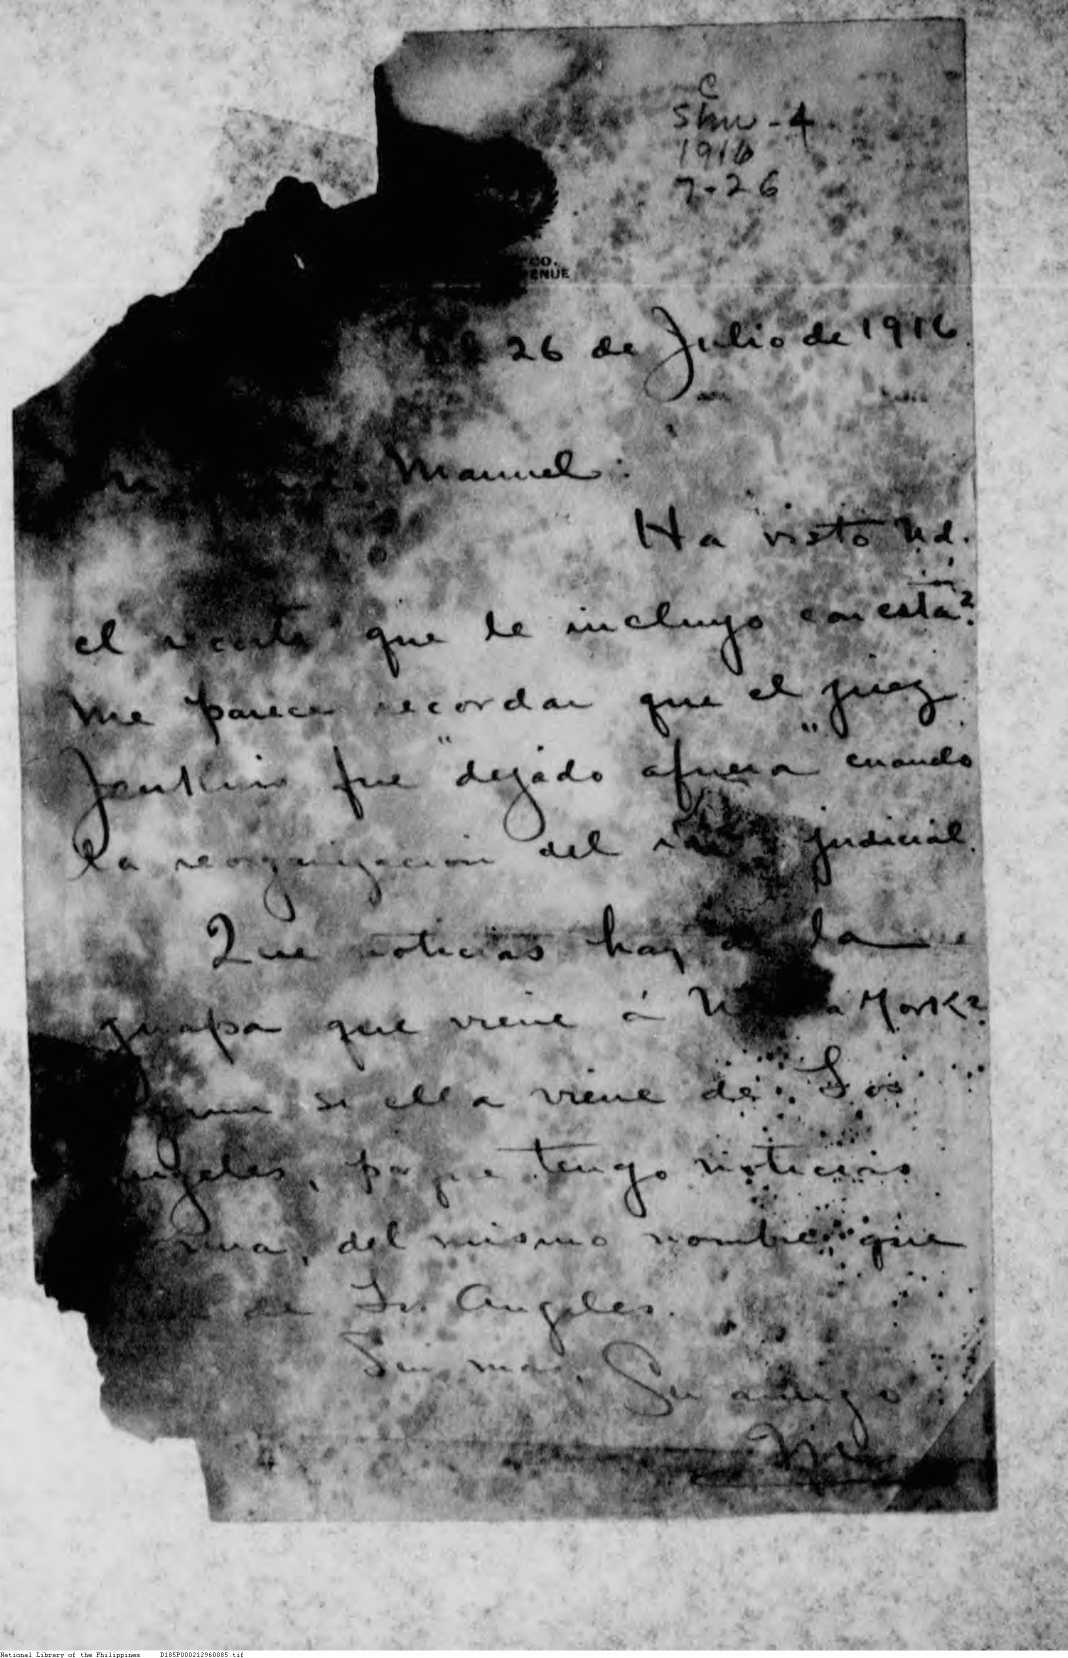 C
Shw-4
1916
7-26
CO.
ENUE
26 de Julio de 1916.
Manuel:
Ha visto Ud.
el recorte que le incluyo con esta?
Me parece recordar que el juez
Jenkins fue "dejado afuera" cuando
la reorganizacion del judicial.
Que noticias hay de la
guapa que viene á Nueva York?
si ella viene de Los
Angeles, porque tengo noticias
una, del mismo nombre que
de Los Angeles.
Sin mas, Su amigo
National Library of the Philippines D185P000212960085.tif